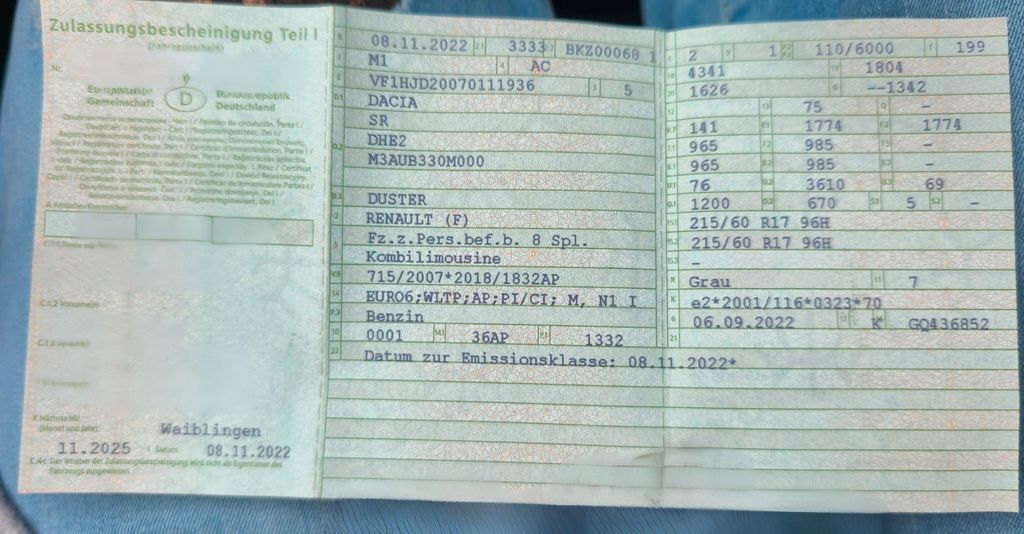 Zulassungsbescheinigung Teil I
(Fahrzeugschein)
Nr.
Europäische Gemeinschaft
D
Bundesrepublik Deutschland
A Amtliches Kennzeichen
C.1.2 Vorname(n)
X Nächste HU
(Monat und Jahr):
Waiblingen
11.2025 I Datum: 08.11.2022
C.4c Der Inhaber der Zulassungsbescheinigung wird nicht als Eigentümer des
Fahrzeugs ausgewiesen.
B 08.11.2022 2.1 3333 2.2 BKZ00068 1
J M1 4 AC
E VF1HJD20070111936 3 5
D.1 DACIA
SR
D.2 DHB2
M3AUB330M000
D.3 DUSTER
2 RENAULT (F)
5 Fz.z.Pers.bef.b. 8 Spl.
Kombilimousine
V.9 715/2007*2018/1832AP
14 EURO6;WLTP;AP;PI/CI; M, N1 I
P.3 Benzin
10 0001 14.1 36AP P.1 1332
22 Datum zur Emissionsklasse: 08.11.2022*
L 2 9 1 P.2 110/6000 T 199
18 4341 19 1804
20 1626 G --1342
12 13 75 Q -
V.7 141 F.1 1774 F.2 1774
7.1 965 7.2 985 7.3 -
8.1 965 8.2 985 8.3 -
U.1 76 U.2 3610 U.3 69
O.1 1200 O.2 670 S.1 5 S.2 -
15.1 215/60 R17 96H
15.2 215/60 R17 96H
15.3 -
R Grau 11 7
K e2*2001/116*0323*70
6 06.09.2022 17 K 16 GQ436852
21